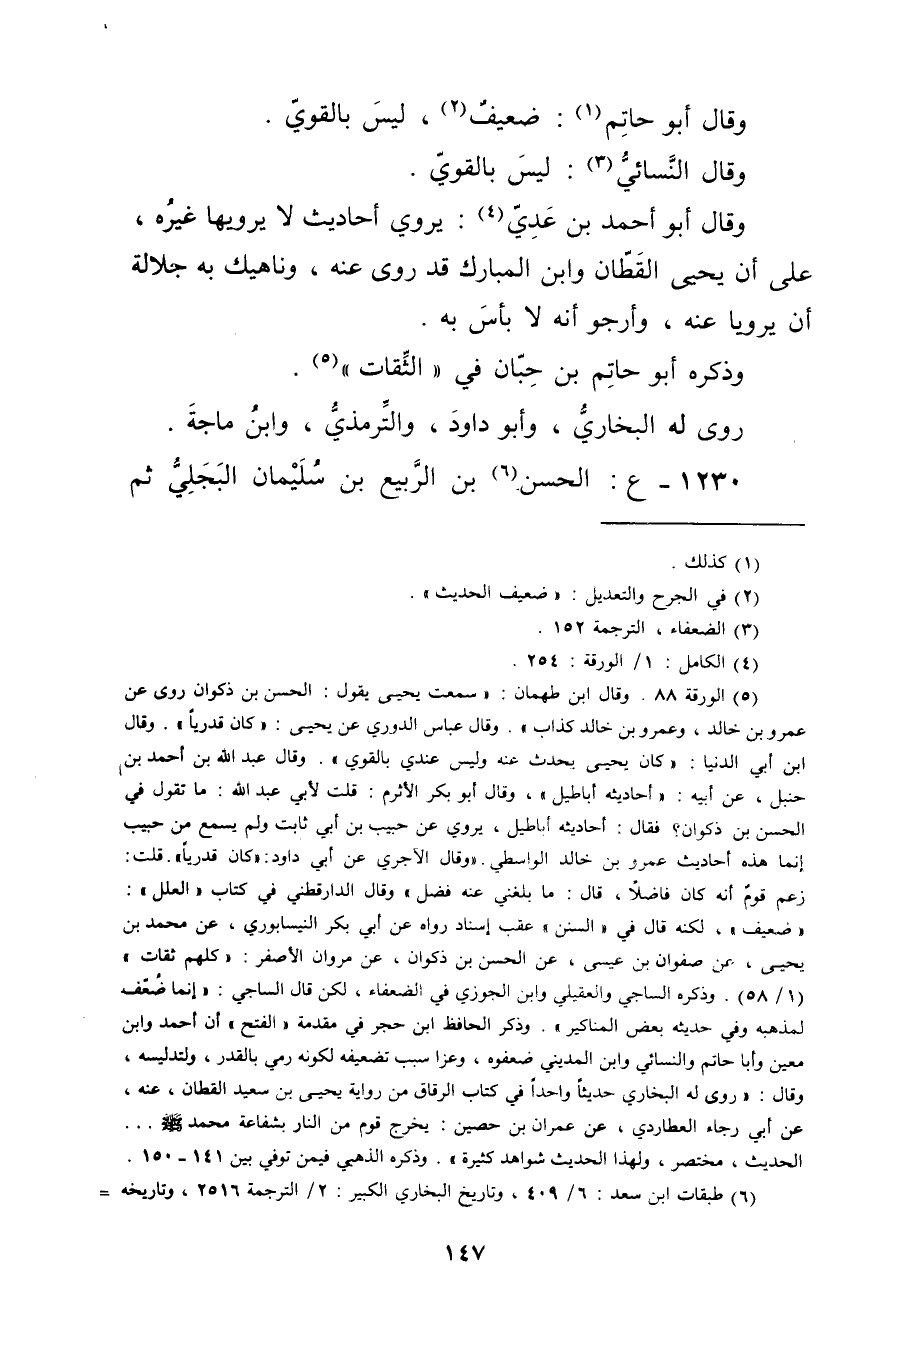 وقال أبو حاتِم(١) : ضعيفٌ(٢) ، ليسَ بالقويّ .
وقال النَّسائيُّ(٣) : ليسَ بالقويّ .
وقال أبو أحمد بن عَدِيّ(٤) : يروي أحاديث لا يرويها غيرُه ،
على أن يحيى القَطّان وابن المبارك قد روى عنه ، وناهيك به جلالة
أن يرويا عنه ، وأرجو أنه لا بأسَ به .
وذكره أبو حاتِم بن حِبّان في « الثِّقات »(٥) .
روى له البخاريُّ ، وأبو داودَ ، والتِّرمذيُّ ، وابنُ ماجةَ .
١٢٣٠ - ع : الحسن(٦) بن الرَّبيع بن سُلَيْمان البَجَلِيُّ ثم
(١) كذلك .
(٢) في الجرح والتعديل : « ضعيف الحديث » .
(٣) الضعفاء ، الترجمة ١٥٢ .
(٤) الكامل : ١/ الورقة : ٢٥٤ .
(٥) الورقة ٨٨ . وقال ابن طهمان : « سمعت يحيى يقول : الحسن بن ذكوان روى عن
عمرو بن خالد ، وعمرو بن خالد كذاب » . وقال عباس الدوري عن يحيى : « كان قدرياً » . وقال
ابن أبي الدنيا : « كان يحيى يحدث عنه وليس عندي بالقوي » . وقال عبد الله بن أحمد بن
حنبل ، عن أبيه : « أحاديثه أباطيل » ، وقال أبو بكر الأثرم : قلت لأبي عبد الله : ما تقول في
الحسن بن ذكوان؟ فقال : أحاديثه أباطيل ، يروي عن حبيب بن أبي ثابت ولم يسمع من حبيب
إنما هذه أحاديث عمرو بن خالد الواسطي . «وقال الآجري عن أبي داود: «كان قدرياً». قلت:
زعم قومٌ أنه كان فاضلاً ، قال : ما بلغني عنه فضل » وقال الدارقطني في كتاب « العلل » :
« ضعيف » ، لكنه قال في « السنن » عقب إسناد رواه عن أبي بكر النيسابوري ، عن محمد بن
يحيى ، عن صفوان بن عيسى ، عن الحسن بن ذكوان ، عن مروان الأصفر : « كلهم ثقات »
(١/ ٥٨) . وذكره الساجي والعقيلي وابن الجوزي في الضعفاء ، لكن قال الساجي : « إنما ضُعّف
لمذهبه وفي حديثه بعض المناكير » . وذكر الحافظ ابن حجر في مقدمة « الفتح » أن أحمد وابن
معين وأبا حاتم والنسائي وابن المديني ضعفوه ، وعزا سبب تضعيفه لكونه رمي بالقدر ، ولتدليسه ،
وقال : « روى له البخاري حديثاً واحداً في كتاب الرقاق من رواية يحيى بن سعيد القطان ، عنه ،
عن أبي رجاء العطاردي ، عن عمران بن حصين : يخرج قوم من النار بشفاعة محمد ﷺ ...
الحديث ، مختصر ، ولهذا الحديث شواهد كثيرة » . وذكره الذهبي فيمن توفي بين ١٤١ - ١٥٠ .
(٦) طبقات ابن سعد : ٦/ ٤٠٩ ، وتاريخ البخاري الكبير : ٢/ الترجمة ٢٥١٦ ، وتاريخه =
١٤٧